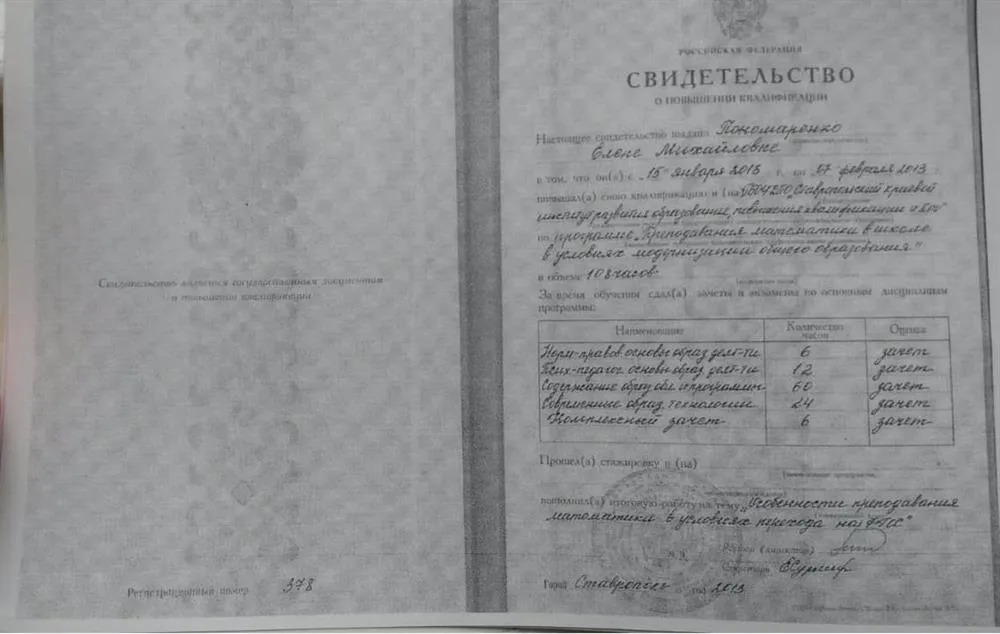 Свидетельство является государственным документом
о повышении квалификации
Регистрационный номер 378
РОССИЙСКАЯ ФЕДЕРАЦИЯ
СВИДЕТЕЛЬСТВО
О ПОВЫШЕНИИ КВАЛИФИКАЦИИ
Настоящее свидетельство выдано Пономаренко
Елене Михайловне
в том, что он(а) с „15" января 2013 г. по 07 февраля 2013
повышал(а) свою квалификацию в (на) Ставропольский краевой
институт развития образования, повышения квалификации и
по программе „Преподавания математики в школе
в условиях модернизации общего образования"
в объеме 108 часов.
За время обучения сдал(а) зачеты и экзамены по основным дисциплинам
программы:
Наименование Количество часов Оценка
Норм-правов. основы образ. деят-ти 6 зачет
Псих-педагог. основы образ. деят-ти 12 зачет
Содержание образ. обл. и программы 60 зачет
Современные образ. технологии 24 зачет
Комплексный зачет 6 зачет
Прошел(а) стажировку в (на)
выполнил(а) итоговую работу на тему „Особенности преподавания
математики в условиях перехода на ФГОС"
М.П. Ректор (директор)
Секретарь
Город Ставрополь год 2013